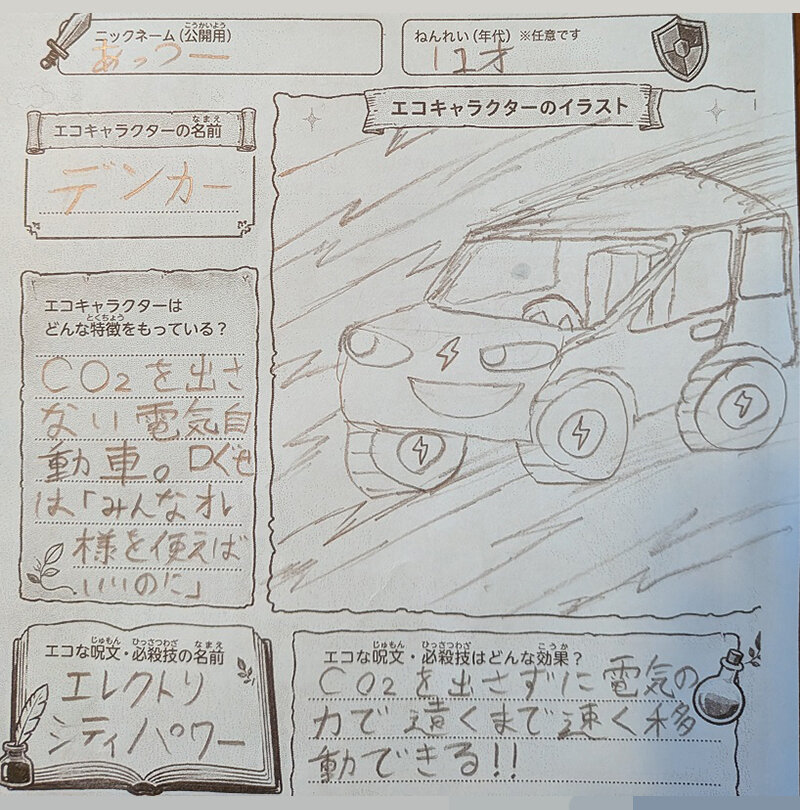 ニックネーム（公開用）
あっつー
ねんれい（年代）※任意です
12才
エコキャラクターの名前
デンカー
エコキャラクターのイラスト
エコキャラクターは
どんな特徴をもっている？
CO2を出さ
ない電気自
動車。口ぐせ
は「みんなオレ
様を使えば
いいのに」
エコな呪文・必殺技の名前
エレクトリ
シティパワー
エコな呪文・必殺技はどんな効果？
CO2を出さずに電気の
力で遠くまで速く移
動できる!!